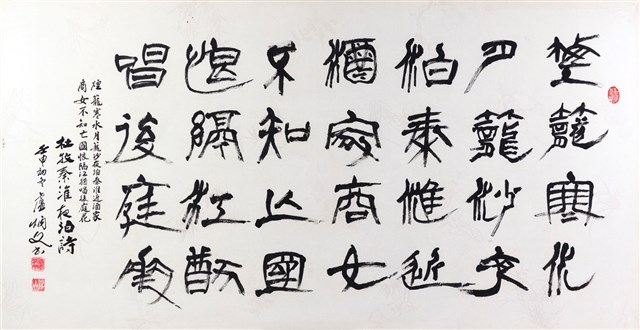 煙籠寒水
月籠沙夜
泊秦淮近
酒家商女
不知亡國
恨隔江猶
唱後庭花
煙籠寒水月籠沙夜泊秦淮近酒家
商女不知亡國恨隔江猶唱後庭花
杜牧秦淮夜泊詩
壬申初 盧炳文书